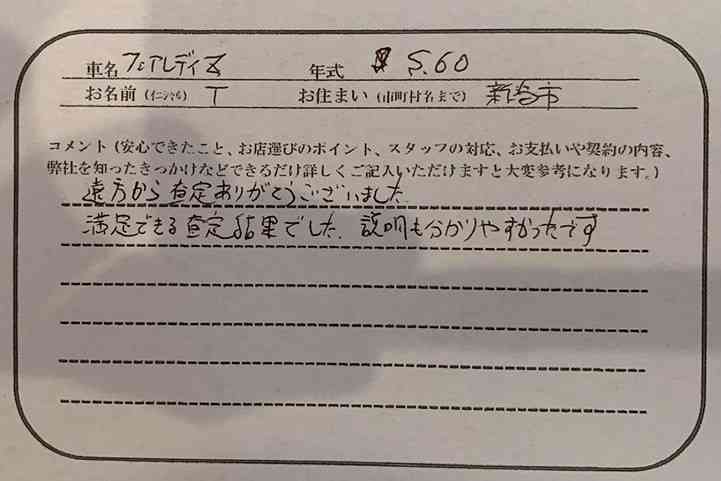 車名 フェアレディZ 年式 S.60
お名前（仁ｼﾃﾓ可） T お住まい（市町村名まで） 新潟市
コメント（安心できたこと、お店選びのポイント、スタッフの対応、お支払いや契約の内容、
弊社を知ったきっかけなどできるだけ詳しくご記入いただけますと大変参考になります。）
遠方から査定ありがとうございました
満足できる査定結果でした、説明も分かりやすかったです